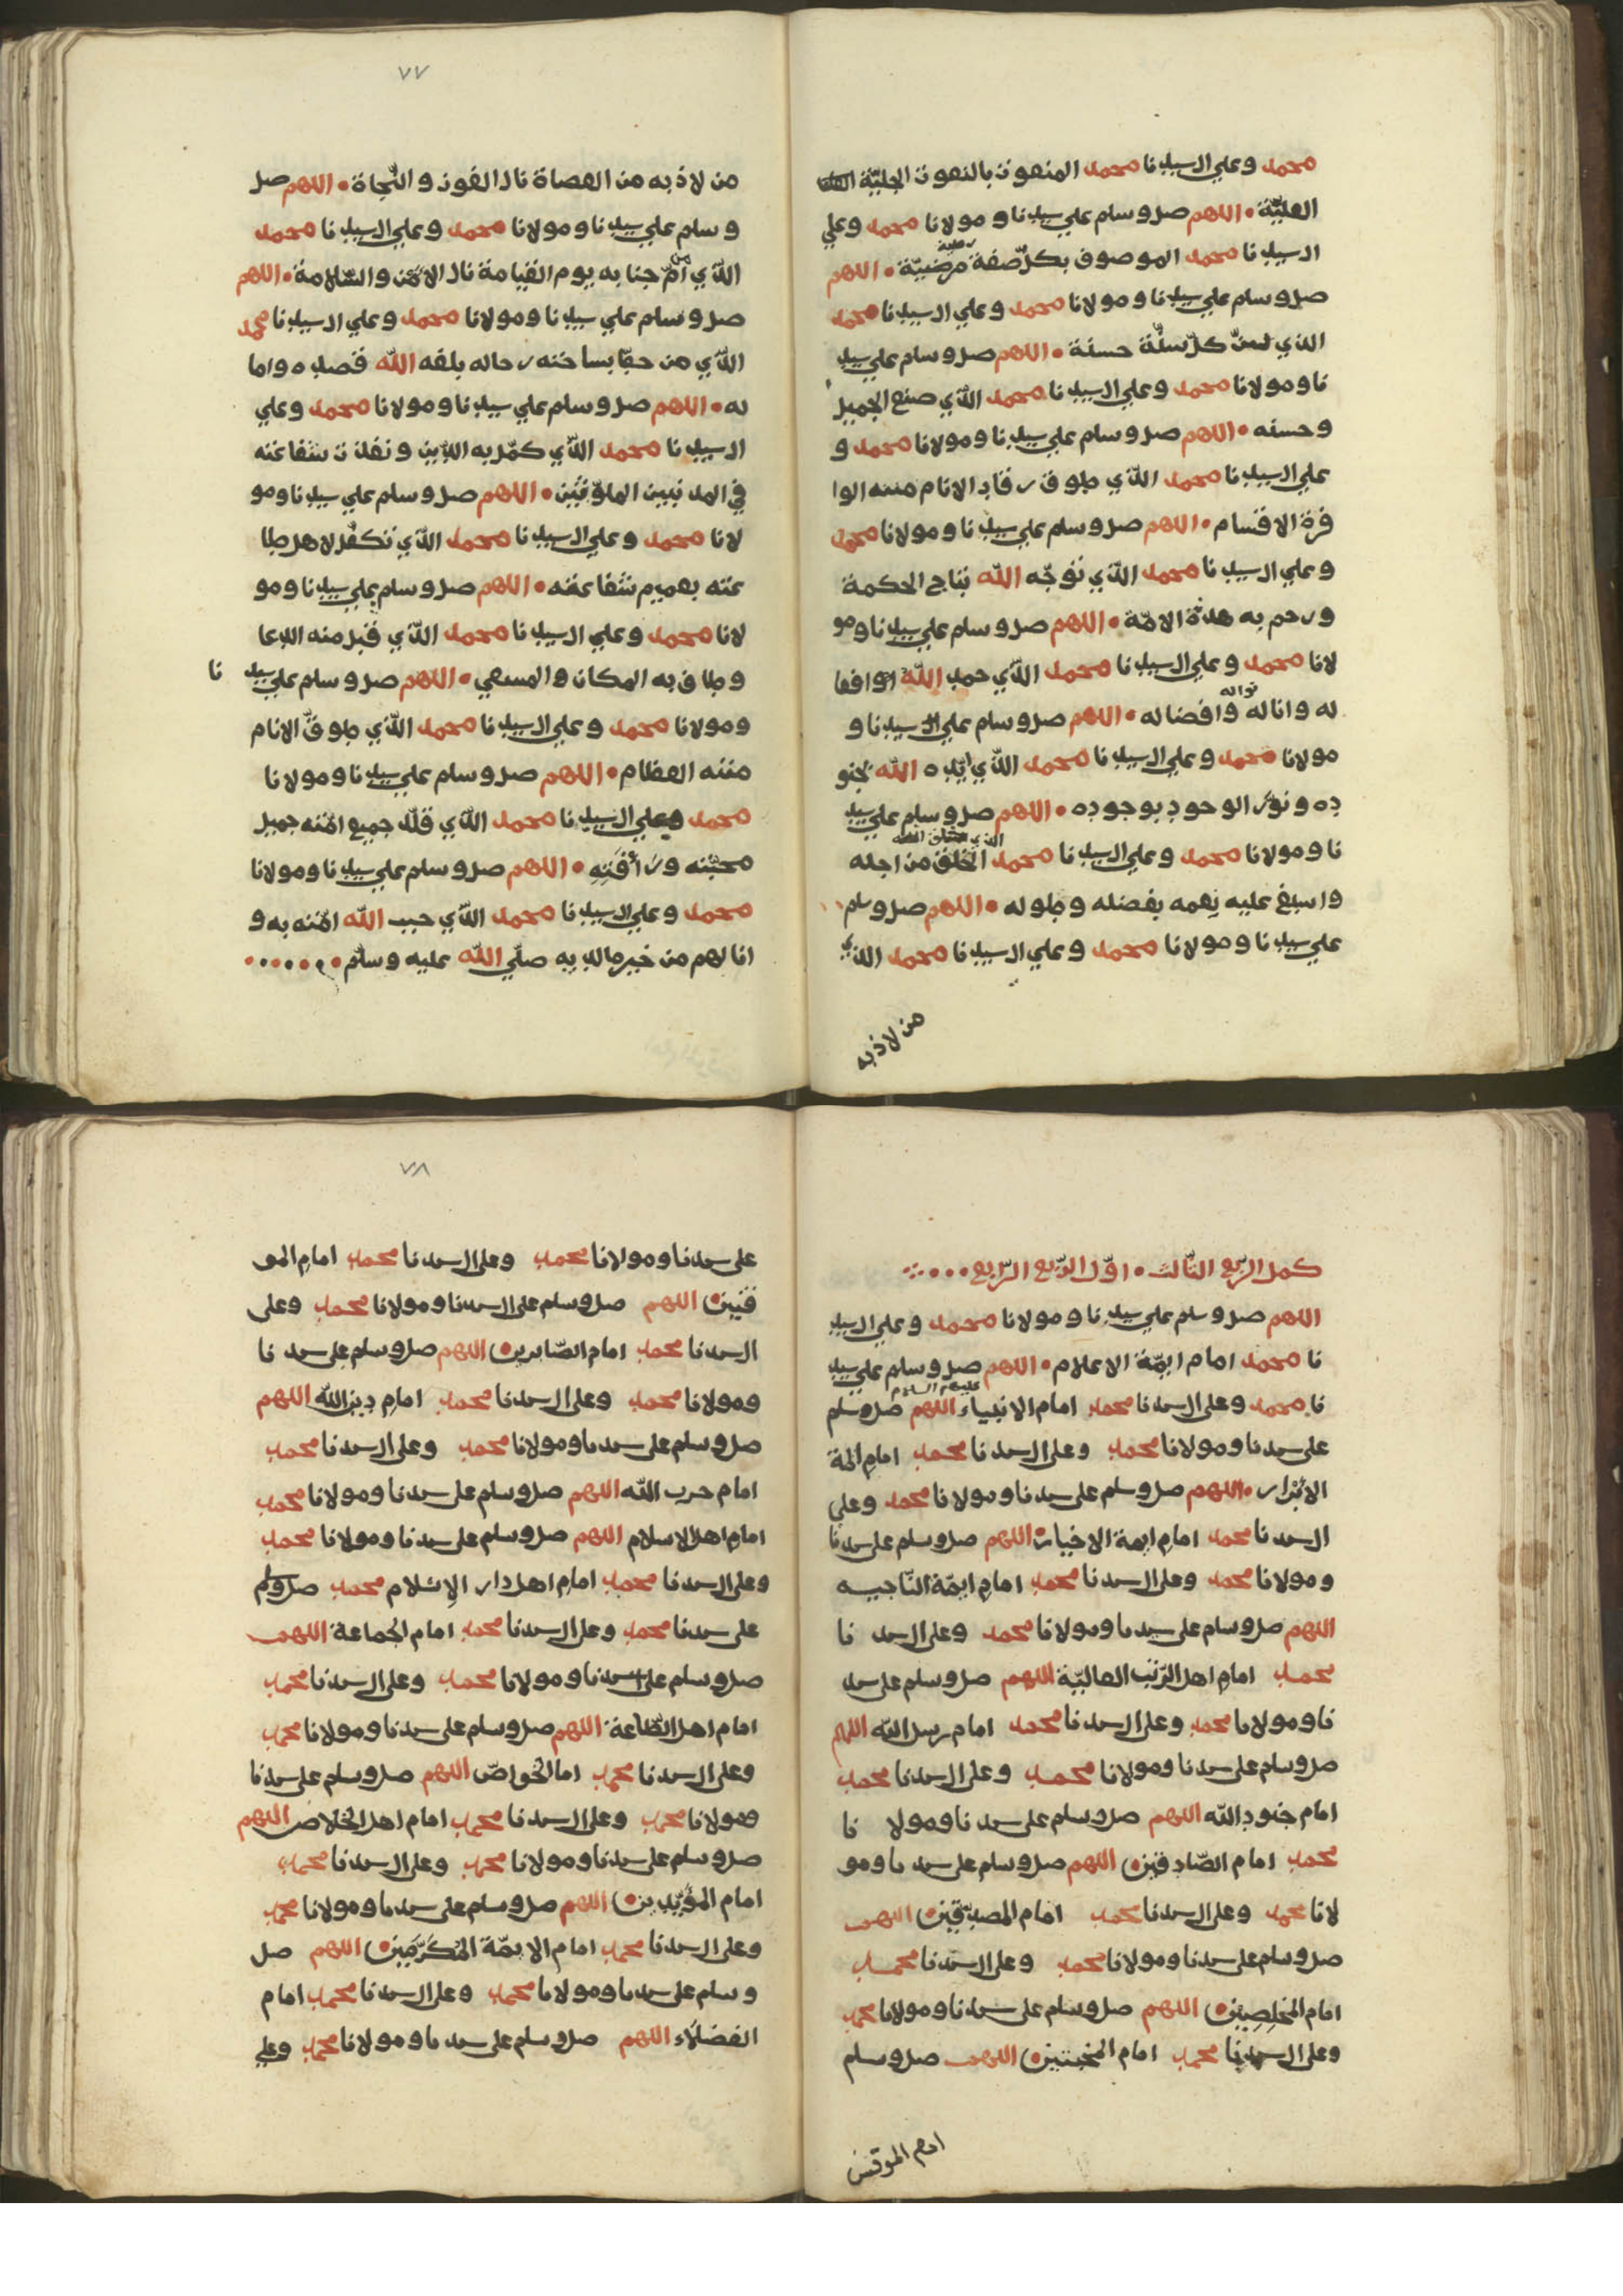 محمد وعلي ال سيدنا محمد المنعوت بالنعوت الجليّة
العليّة • اللهم صل وسلم علي سيدنا و مولانا محمد وعلي
ال سيدنا محمد الموصوف بكل صفة مرضيّة • اللهم
صل وسلم علي سيدنا ومولانا محمد وعلي ال سيدنا محمد
الذي سنّ كلّ سنّة حسنة • اللهم صل وسلم علي سيد
نا ومولانا محمد وعلي ال سيدنا محمد الذي صنع الجميل
وحسنه • اللهم صل وسلم علي سيدنا ومولانا محمد و
علي ال سيدنا محمد الذي طوق رقاب الانام مننه الوا
فرة الاقسام • اللهم صل وسلم علي سيدنا ومولانا محمد
وعلي ال سيدنا محمد الذي توّجه الله بتاج الحكمة
ورحم به هدة الامّة • اللهم صل وسلم علي سيدنا ومو
لانا محمد وعلي ال سيدنا محمد الذي حمد الله
له وانا له نواله وافضاله • اللهم صل وسلم علي ال سيدنا و
مولانا محمد وعلي ال سيدنا محمد الذي ايّده الله بجنو
ده ونوّر الوجود بوجوده • اللهم صل وسلم علي سيد
نا ومولانا محمد وعلي ال سيدنا محمد الذي الخلق من اجله
واسبغ عليه نعمه بفضله وطوله • اللهم صل وسلم
علي سيدنا ومولانا محمد وعلي ال سيدنا محمد الذي
من لاذ به
٧٧
من لاذ به من العصاة نال الفوز والنّجاة • اللهم صل
وسلم علي سيدنا ومولانا محمد وعلي ال سيدنا محمد
الذي من امّ جنابه يوم القيامة نال الامن والسّلامة • اللهم
صل وسلم علي سيدنا ومولانا محمد وعلي ال سيدنا محمد
الذي من حطّ بساحته رحاله بلغه الله قصده واما
له • اللهم صل وسلم علي سيدنا ومولانا محمد وعلي
ال سيدنا محمد الذي كمّل به الدين ونفذت شفاعته
في المذنبين الملوّثين • اللهم صل وسلم علي سيدنا ومو
لانا محمد وعلي ال سيدنا محمد الذي تكفّل لاهل طا
عته بعميم شفاعته • اللهم صل وسلم علي سيدنا ومو
لانا محمد وعلي ال سيدنا محمد الذي قبل منه الدعا
وطاف به المكان والمسعي • اللهم صل وسلم علي سيد نا
ومولانا محمد وعلي ال سيدنا محمد الذي طوق الانام
مننه العظام • اللهم صل وسلم علي سيدنا ومولانا
محمد وعلي ال سيدنا محمد الذي قلّد جميع امّته جميل
محبّته ورأفته • اللهم صل وسلم علي سيدنا ومولانا
محمد وعلي ال سيدنا محمد الذي حبب الله امّته به و
انالهم من خير ما لديه صلّي الله عليه وسلّم •
كمل الرّبع الثّالث • اوّل الرّبع الرّبع
اللهم صل وسلم علي سيدنا ومولانا محمد وعلي ال سيد
نا محمد امام ايمّة الاعلام • اللهم صل وسلم علي سيد
نا محمد وعلى ال سيدنا محمد امام الانبياء عليهم السلام اللهم صل وسلم
على سيدنا ومولانا محمد وعلى ال سيدنا محمد امام ايمة
الابرار • اللهم صل وسلم على سيدنا ومولانا محمد وعلي
ال سيدنا محمد امام ايمة الاخيار • اللهم صل وسلم على سيدنا
ومولانا محمد وعلى ال سيدنا محمد امام ايمّة النّاجيه
اللهم صل وسلم على سيدنا ومولانا محمد وعلى ال سيد نا
محمد امام اهل الرّتب العاليّة اللهم صل وسلم على سيد
نا ومولانا محمد وعلى ال سيدنا محمد امام رسل الله اللهم
صل وسلم على سيدنا ومولانا محمد وعلى ال سيدنا محمد
امام جنود الله اللهم صل وسلم على سيدنا ومولا نا
محمد امام الصّادقين اللهم صل وسلم على سيدنا ومو
لانا محمد وعلى ال سيدنا محمد امام المصدّقين اللهم
صل وسلم على سيدنا ومولانا محمد وعلى ال سيدنا محمد
امام المخلصين اللهم صل وسلم على سيدنا ومولانا محمد
وعلى ال سيدنا محمد امام المخبتين اللهم صل وسلم
امام الموقنين
٧٨
على سيدنا ومولانا محمد وعلى ال سيدنا محمد امام المو
قنين اللهم صل وسلم على ال سيدنا ومولانا محمد وعلى
ال سيدنا محمد امام الصّابرين اللهم صل وسلم على سيد نا
ومولانا محمد وعلى ال سيدنا محمد امام دين الله اللهم
صل وسلم على سيدنا ومولانا محمد وعلى ال سيدنا محمد
امام حزب الله اللهم صل وسلم على سيدنا ومولانا محمد
امام اهل الاسلام اللهم صل وسلم على سيدنا ومولانا محمد
وعلى ال سيدنا محمد امام اهل دار الاسلام محمد صل وسلم
على سيدنا محمد وعلى ال سيدنا محمد امام الجماعة اللهم
صل وسلم على سيدنا ومولانا محمد وعلى ال سيدنا محمد
امام اهل الطّاعة اللهم صل وسلم على سيدنا ومولانا محمد
وعلى ال سيدنا محمد امام الخواصّ اللهم صل وسلم على سيدنا
ومولانا محمد وعلى ال سيدنا محمد امام اهل الخلاص اللهم
صل وسلم على سيدنا ومولانا محمد وعلى ال سيدنا محمد
امام المؤيّدين اللهم صل وسلم على سيدنا ومولانا محمد
وعلى ال سيدنا محمد امام الايمّة المكرّمين اللهم صل
وسلم على سيدنا ومولانا محمد وعلى ال سيدنا محمد امام
الفضلاء اللهم صل وسلم على سيدنا ومولانا محمد وعلي